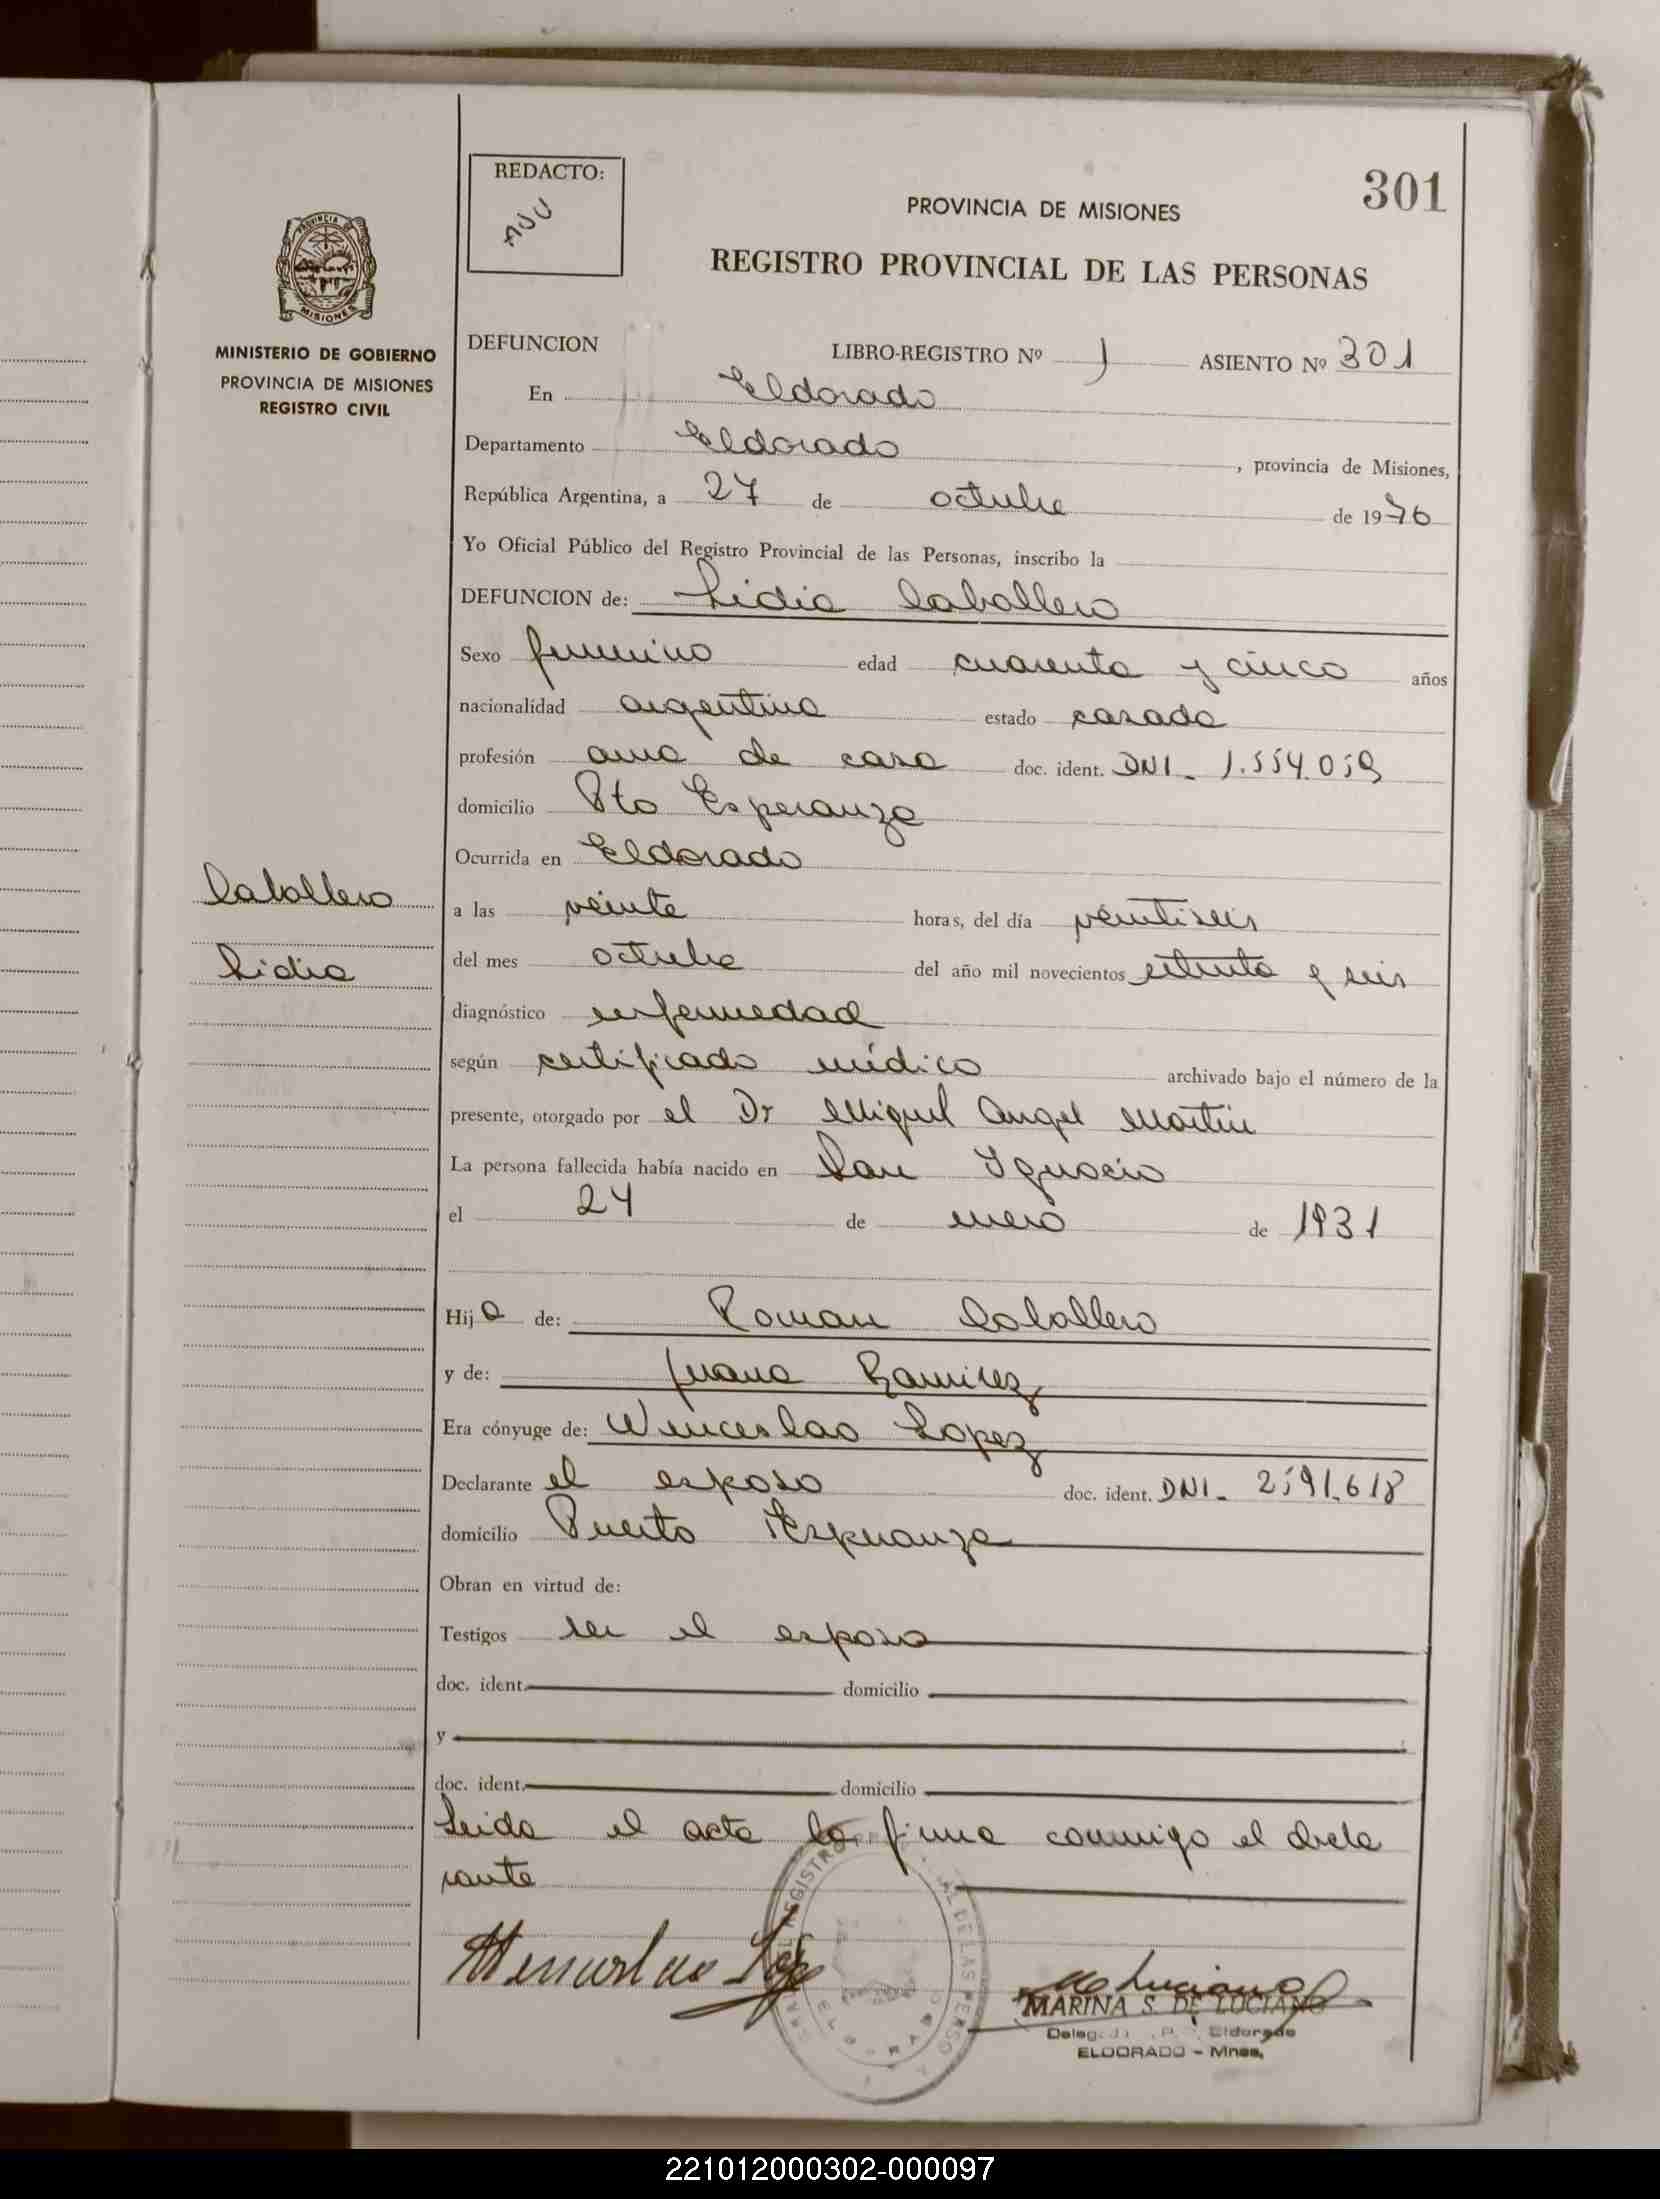 REDACTO:
AJU
301
PROVINCIA DE MISIONES
REGISTRO PROVINCIAL DE LAS PERSONAS
PROVINCIA DE
MISIONES
MINISTERIO DE GOBIERNO
PROVINCIA DE MISIONES
REGISTRO CIVIL
DEFUNCION LIBRO-REGISTRO Nº 1 ASIENTO Nº 301
En Eldorado
Departamento Eldorado, provincia de Misiones,
República Argentina, a 27 de octubre de 1976
Yo Oficial Público del Registro Provincial de las Personas, inscribo la
DEFUNCION de: Lidia Caballero
Sexo femenino edad cuarenta y cinco años
nacionalidad argentina estado casada
profesión ama de casa doc. ident. DNI- 1.554.059
domicilio Pto Esperanza
Ocurrida en Eldorado
Caballero
Lidia
a las veinte horas, del día veintiseis
del mes octubre del año mil novecientos setenta y seis
diagnóstico enfermedad
según certificado médico archivado bajo el número de la
presente, otorgado por el Dr Miguel Angel Martin
La persona fallecida había nacido en San Ignacio
el 24 de enero de 1931
Hija de: Roman Caballero
y de: Juana Ramirez
Era cónyuge de: Wenceslao Lopez
Declarante el esposo doc. ident. DNI- 2591.618
domicilio Puerto Esperanza
Obran en virtud de:
Testigos ser el esposo
doc. ident. domicilio
y
doc. ident. domicilio
Leida el acta la firma conmigo el decla
rante
Wenceslao Lopez
de Luciano
MARINA S. DE LUCIANO
Eldorado
ELDORADO - Mnes.
221012000302-000097